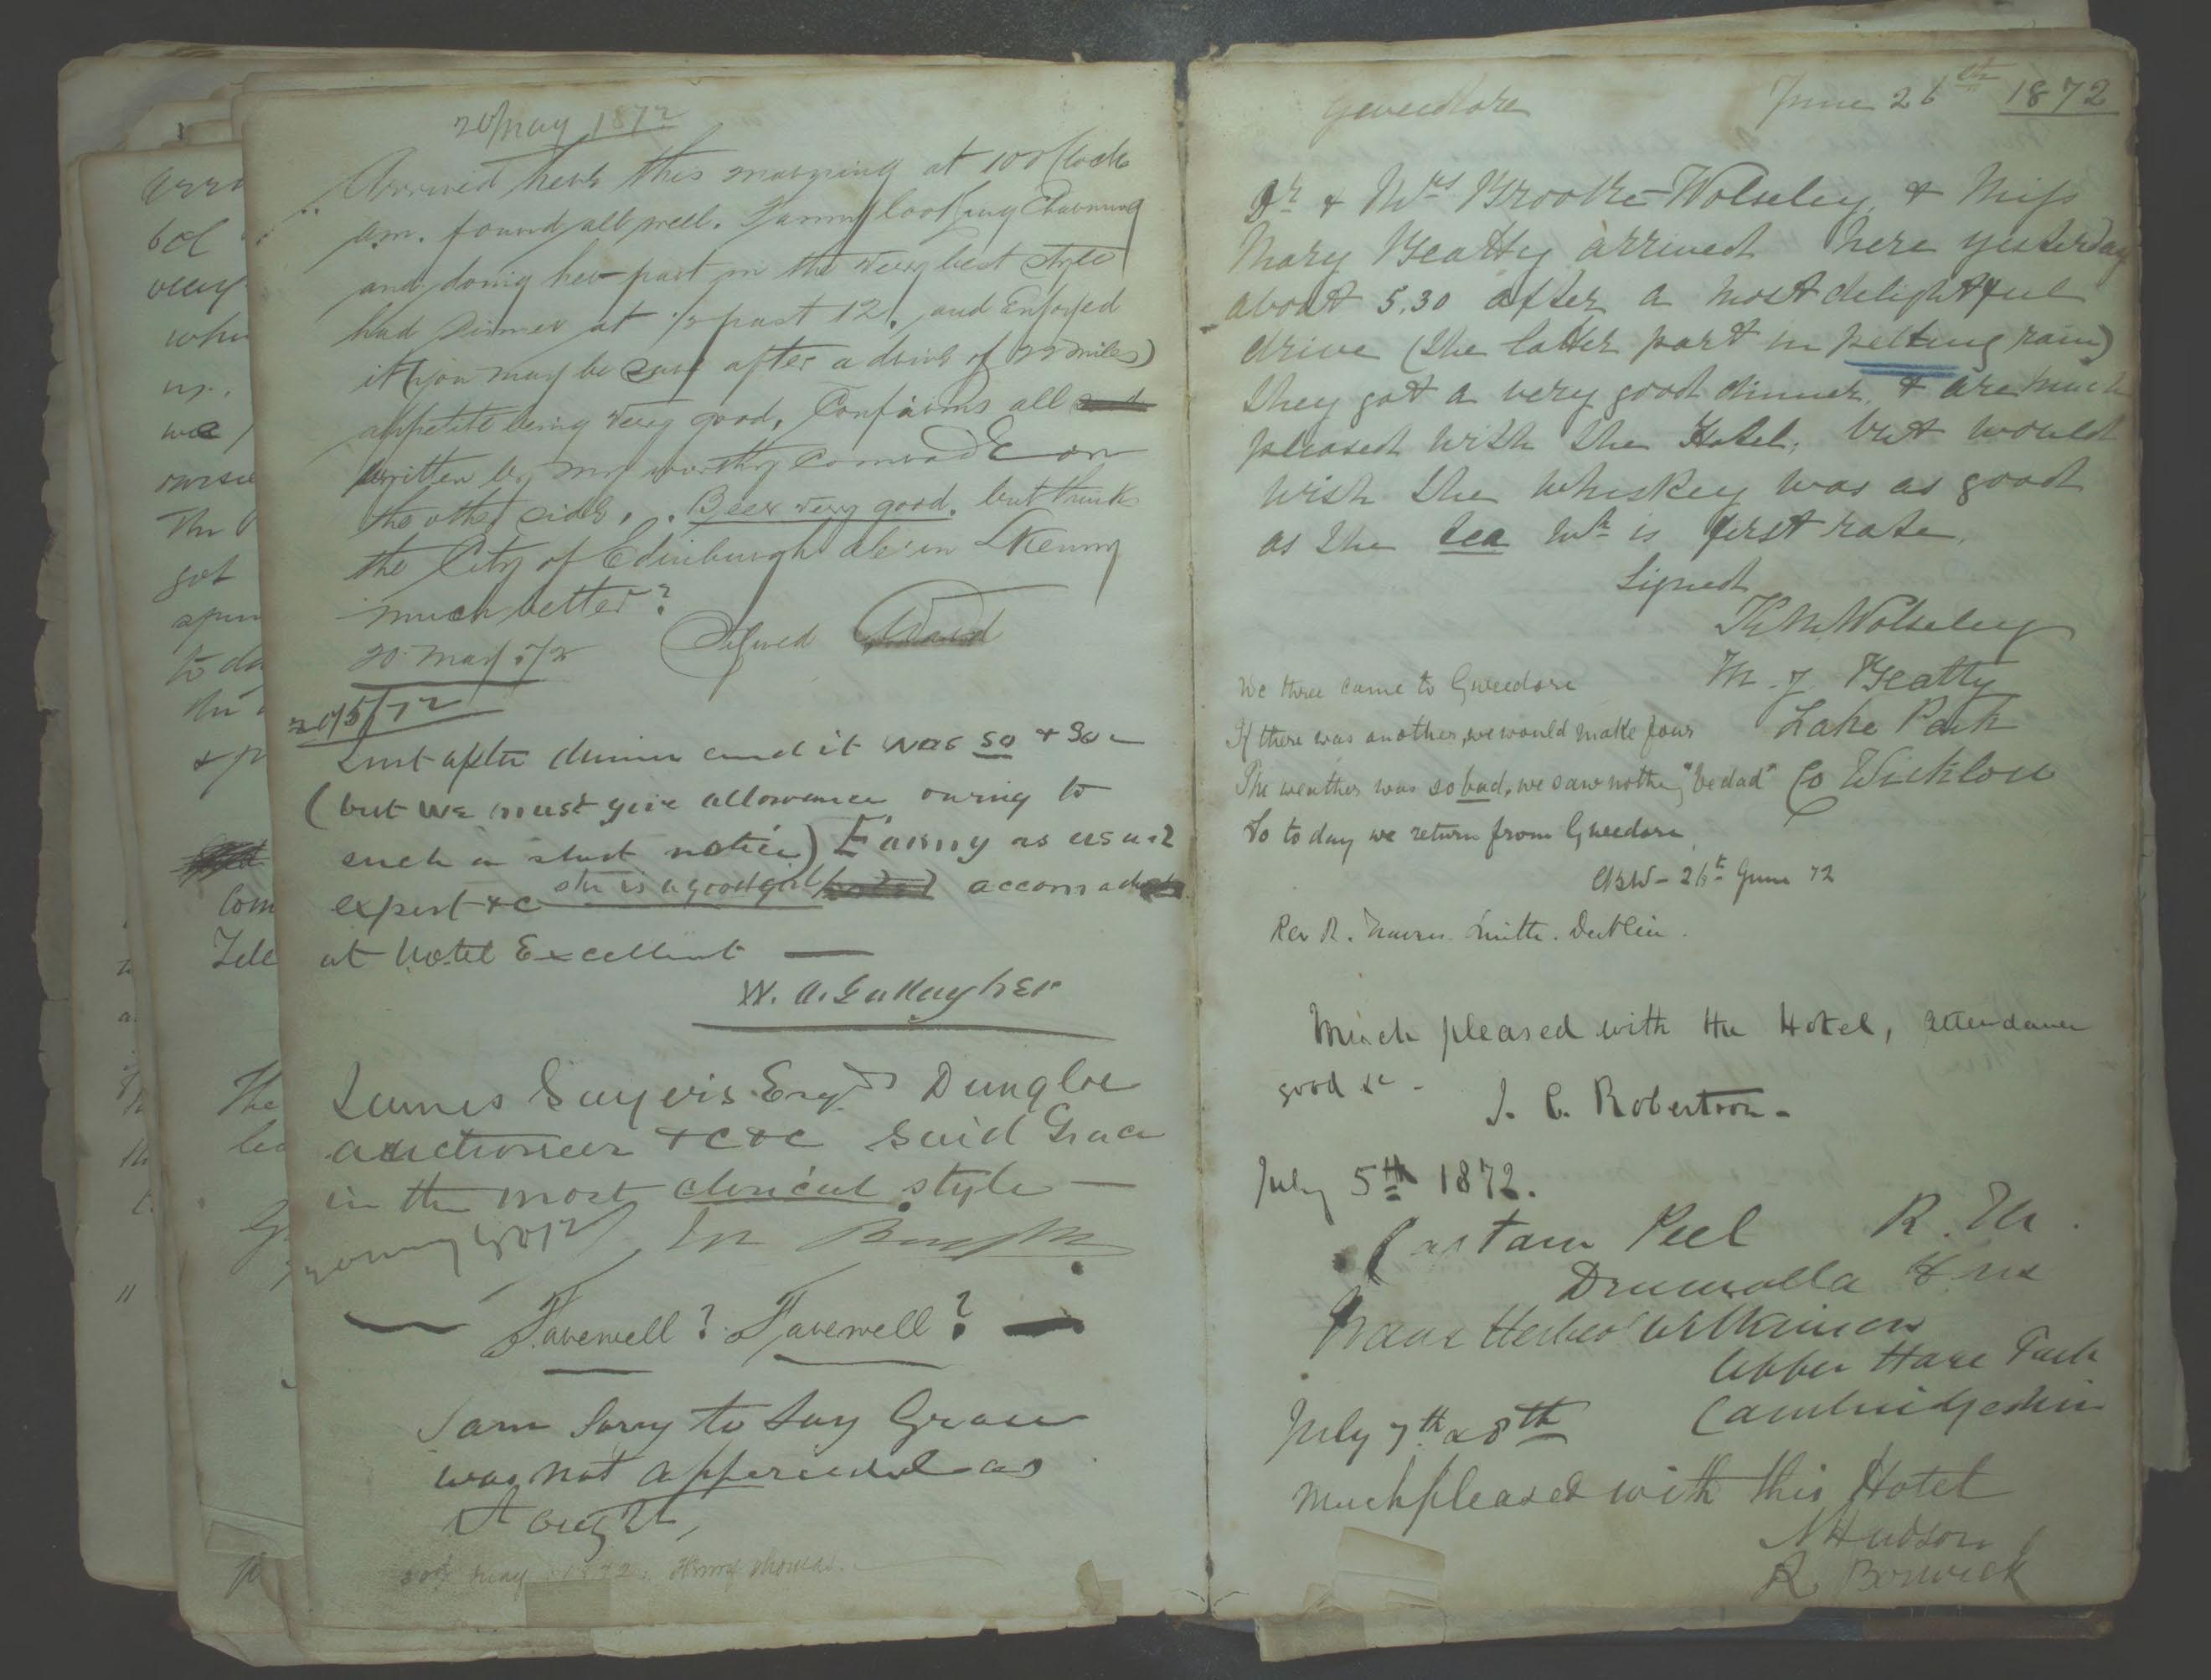 20 May 1872
Arrived here this morning at 10 o'Clock
a.m. found all well. Fanny looking Charming
and doing her part in the very best style
had dinner at 1/2 past 12, and Enjoyed
it (you may be sure after a drive of 22 miles)
appetite being very good, Confirms all
written by my worthy Comrade on
the other side, . Beer very good. but think
the City of Edinburgh ale in
much better?
20 May /72 Signed
20/5/72
Just after dinner and it was so + so
(but we must give allowance owing to
such a short notice) Fanny as usual
expert +c she is a good girl
at Hotel Excellent —
W. A. Gallagher
James Sayers Esqr Dungloe
auctioneer +c+c said Grace
in the most clerical style —
— Farewell? Farewell? —
I am Sorry to Say Grace
was not appreciated as
it ought,
20th May 1872. Henry Thomas.
Gweedore June 26th 1872
Dr & Mrs Brooke-Wolseley, & Miss
Mary Beatty arrived here yesterday
about 5.30 after a most delightful
drive (the latter part in pelting rain)
They got a very good dinner, & are much
pleased with the Hotel; but would
wish the whiskey was as good
as the tea wh is first rate.
Signed
K M Wolseley
M. J. Beatty
Lake Park
Co Wicklow
We three came to Gweedore
If there was another, we would make four
The weather was so bad, we saw nothing "bedad"
So to day we return from Gweedore
CBW - 26t June 72
Rev R. Travers Smith. Dublin.
Much pleased with the Hotel, attendance
good &c -
J. C. Robertson -
July 5th 1872.
Captain Peel R. M.
Drumalla House
Isaac Herbert Wilkinson
Upper Hare Park
Cambridgeshire
July 7th & 8th
Much pleased with this Hotel
N Hudson
R Borwick